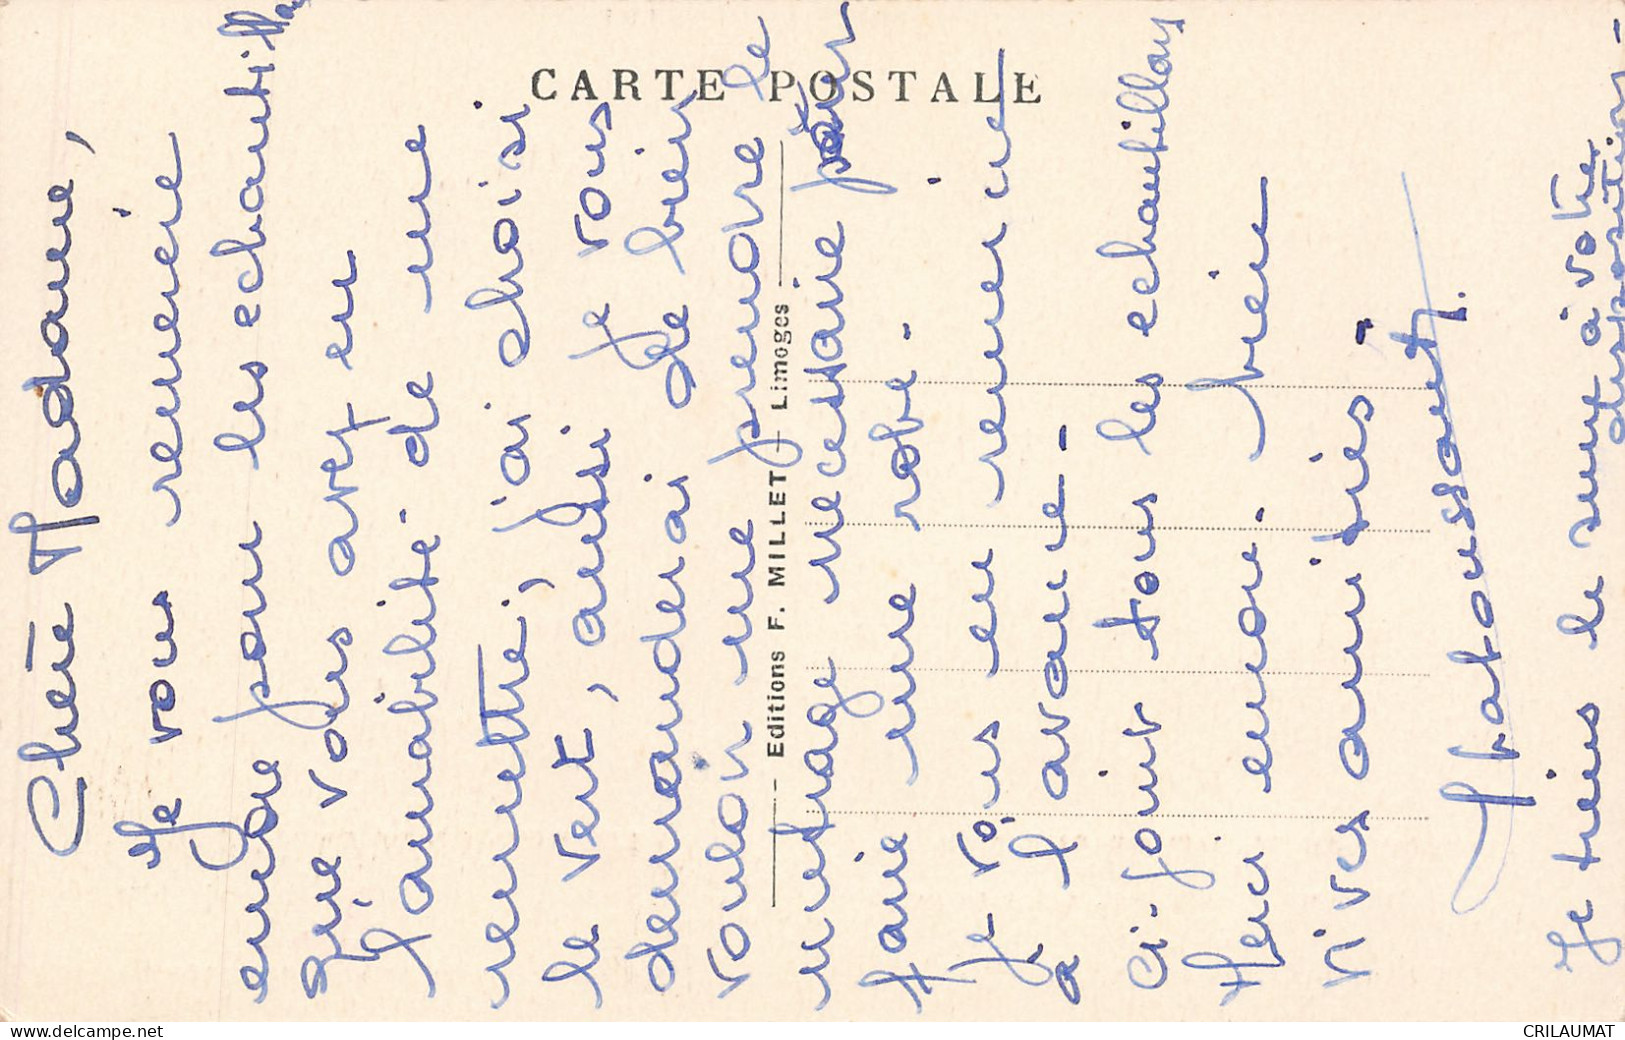 CARTE POSTALE
Editions F. MILLET - Limoges
Chère Madame,
Je vous remercie
encore pour les echantillons
que vous avez eu
l'amabilité de me
remettre, j'ai choisi
le vert, aussi je vous
demanderai de bien
vouloir me prendre le
metrage necessaire pour
faire une robe.
Je vous en remercie
a l'avance.
Ci-joint tous les echantillons
Merci encore. Bien
vives amitiés,
Je tiens le reste à votre
disposition.
www.delcampe.net
CRILAUMAT